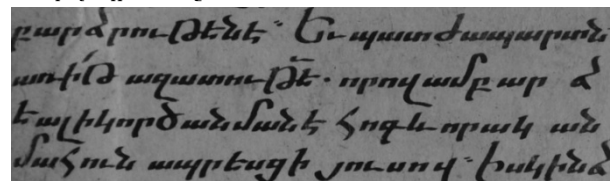 բարձրութենէ։ Եւ պատժապարտն
առիթ ազատութէ. որով ամբար ձ
եալ ի կործանմանէ հոգևորակ ան
մահուն ապրեացի յուսով։ իսկ ինձ